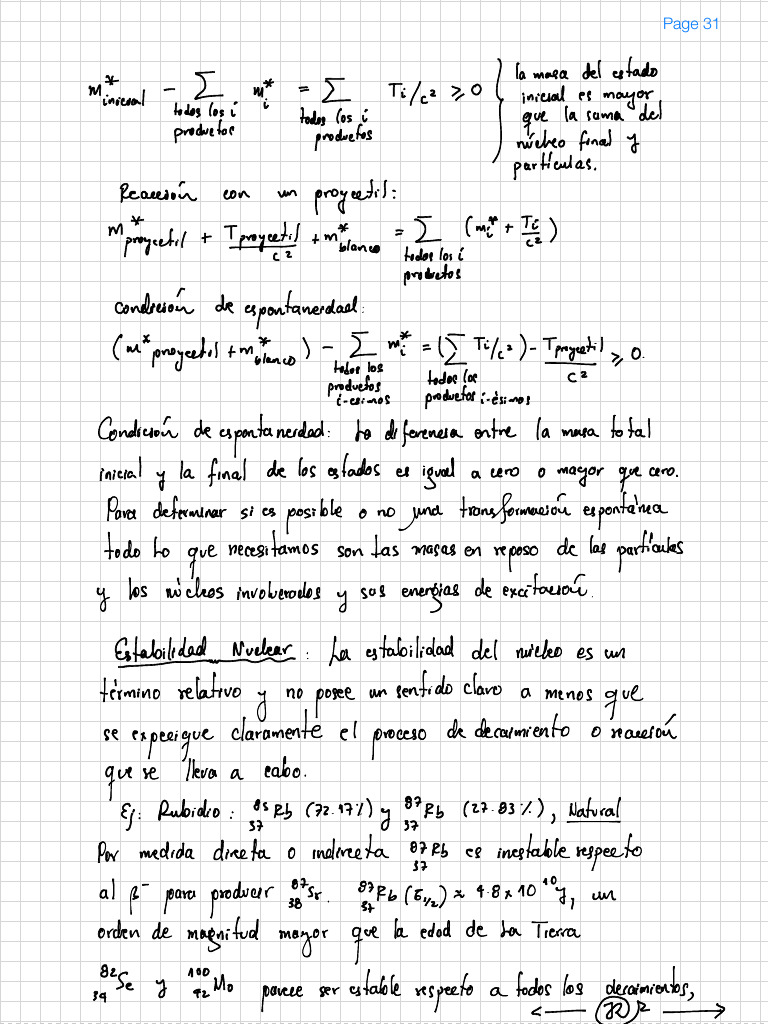 Page 31
m*inicial − ∑ m*i = ∑ Ti/c² ⩾ 0
todos los i productos
todos los i productos
la masa del estado
inicial es mayor
que la suma del
núcleo final y
partículas.
Reacción con un proyectil:
m*proyectil + Tproyectil/c² + m*blanco = ∑ (m*i + Ti/c²)
todos los i
productos
condición de espontaneidad:
(m*proyectil + m*blanco) − ∑ m*i = (∑ Ti/c²) − Tproyectil/c² ⩾ 0.
todos los productos i-esimos
todos los productos i-ésimos
Condición de espontaneidad: La diferencia entre la masa total
inicial y la final de los estados es igual a cero o mayor que cero.
Para determinar si es posible o no una transformación espontánea
todo lo que necesitamos son las masas en reposo de las partículas
y los núcleos involucrados y sus energías de excitación.
Estabilidad Nuclear: La estabilidad del núcleo es un
término relativo y no posee un sentido claro a menos que
se especifique claramente el proceso de decaimiento o reacción
que se lleva a cabo.
Ej: Rubidio: ⁸⁵₃₇Rb (72.17%) y ⁸⁷₃₇Rb (27.83%), Natural
Por medida directa o indirecta ⁸⁷₃₇Rb es inestable respecto
al β⁻ para producir ⁸⁷₃₈Sr. ⁸⁷₃₇Rb (t₁/₂) ≈ 4.8 x 10¹⁰y, un
orden de magnitud mayor que la edad de la Tierra
⁸²₃₄Se y ¹⁰⁰₄₂Mo parece ser estable respecto a todos los decaimientos,